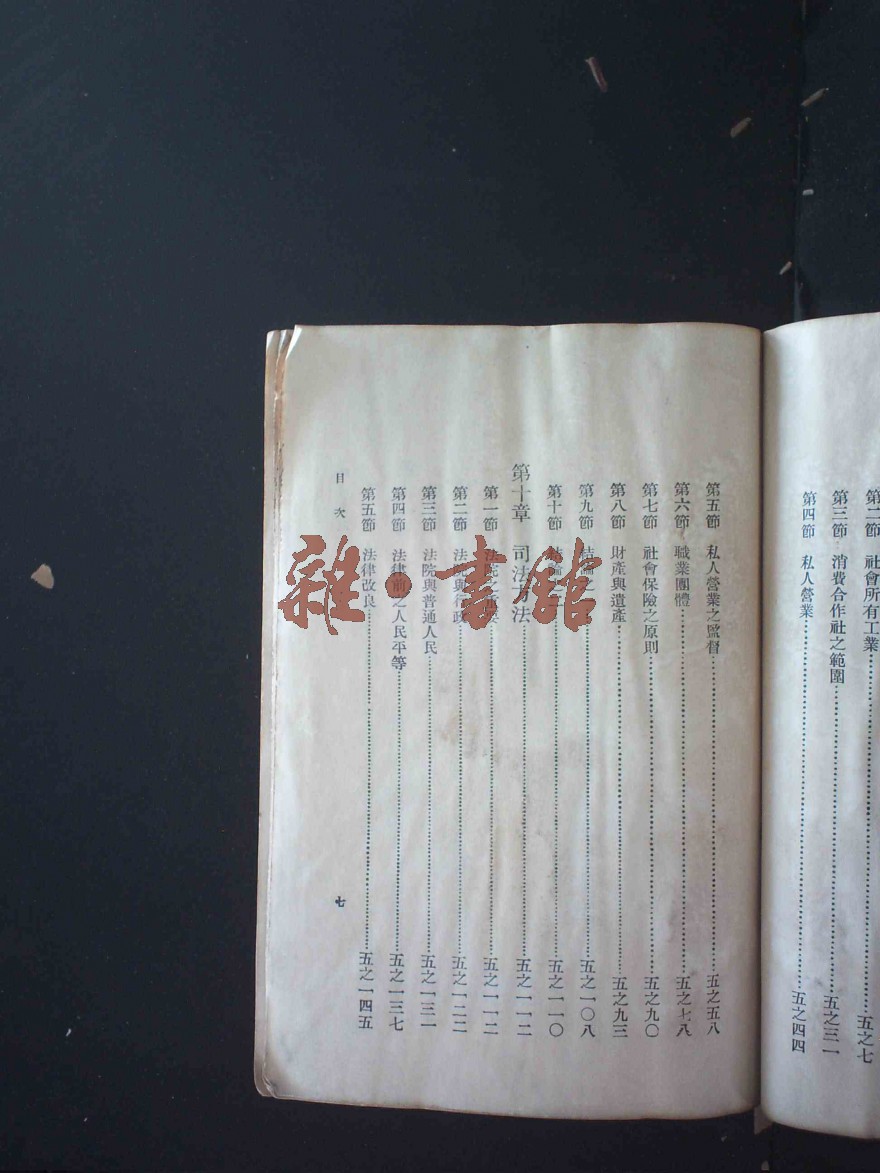 第二節　社會所有工業……五之七
第三節　消費合作社之範圍……五之三一
第四節　私人營業……五之四四
第五節　私人營業之監督……五之五八
第六節　職業團體……五之七八
第七節　社會保險之原則……五之九〇
第八節　財產與遺產……五之九三
第九節　結論……五之一〇八
第十節　結論……五之一一〇
第十章　司法方法……五之一一二
第一節　法院之……五之一一二
第二節　法院與行政……五之一二二
第三節　法院與普通人民……五之一三一
第四節　法律前之人民平等……五之一三七
第五節　法律改良……五之一四五
目次
七
雜·書館